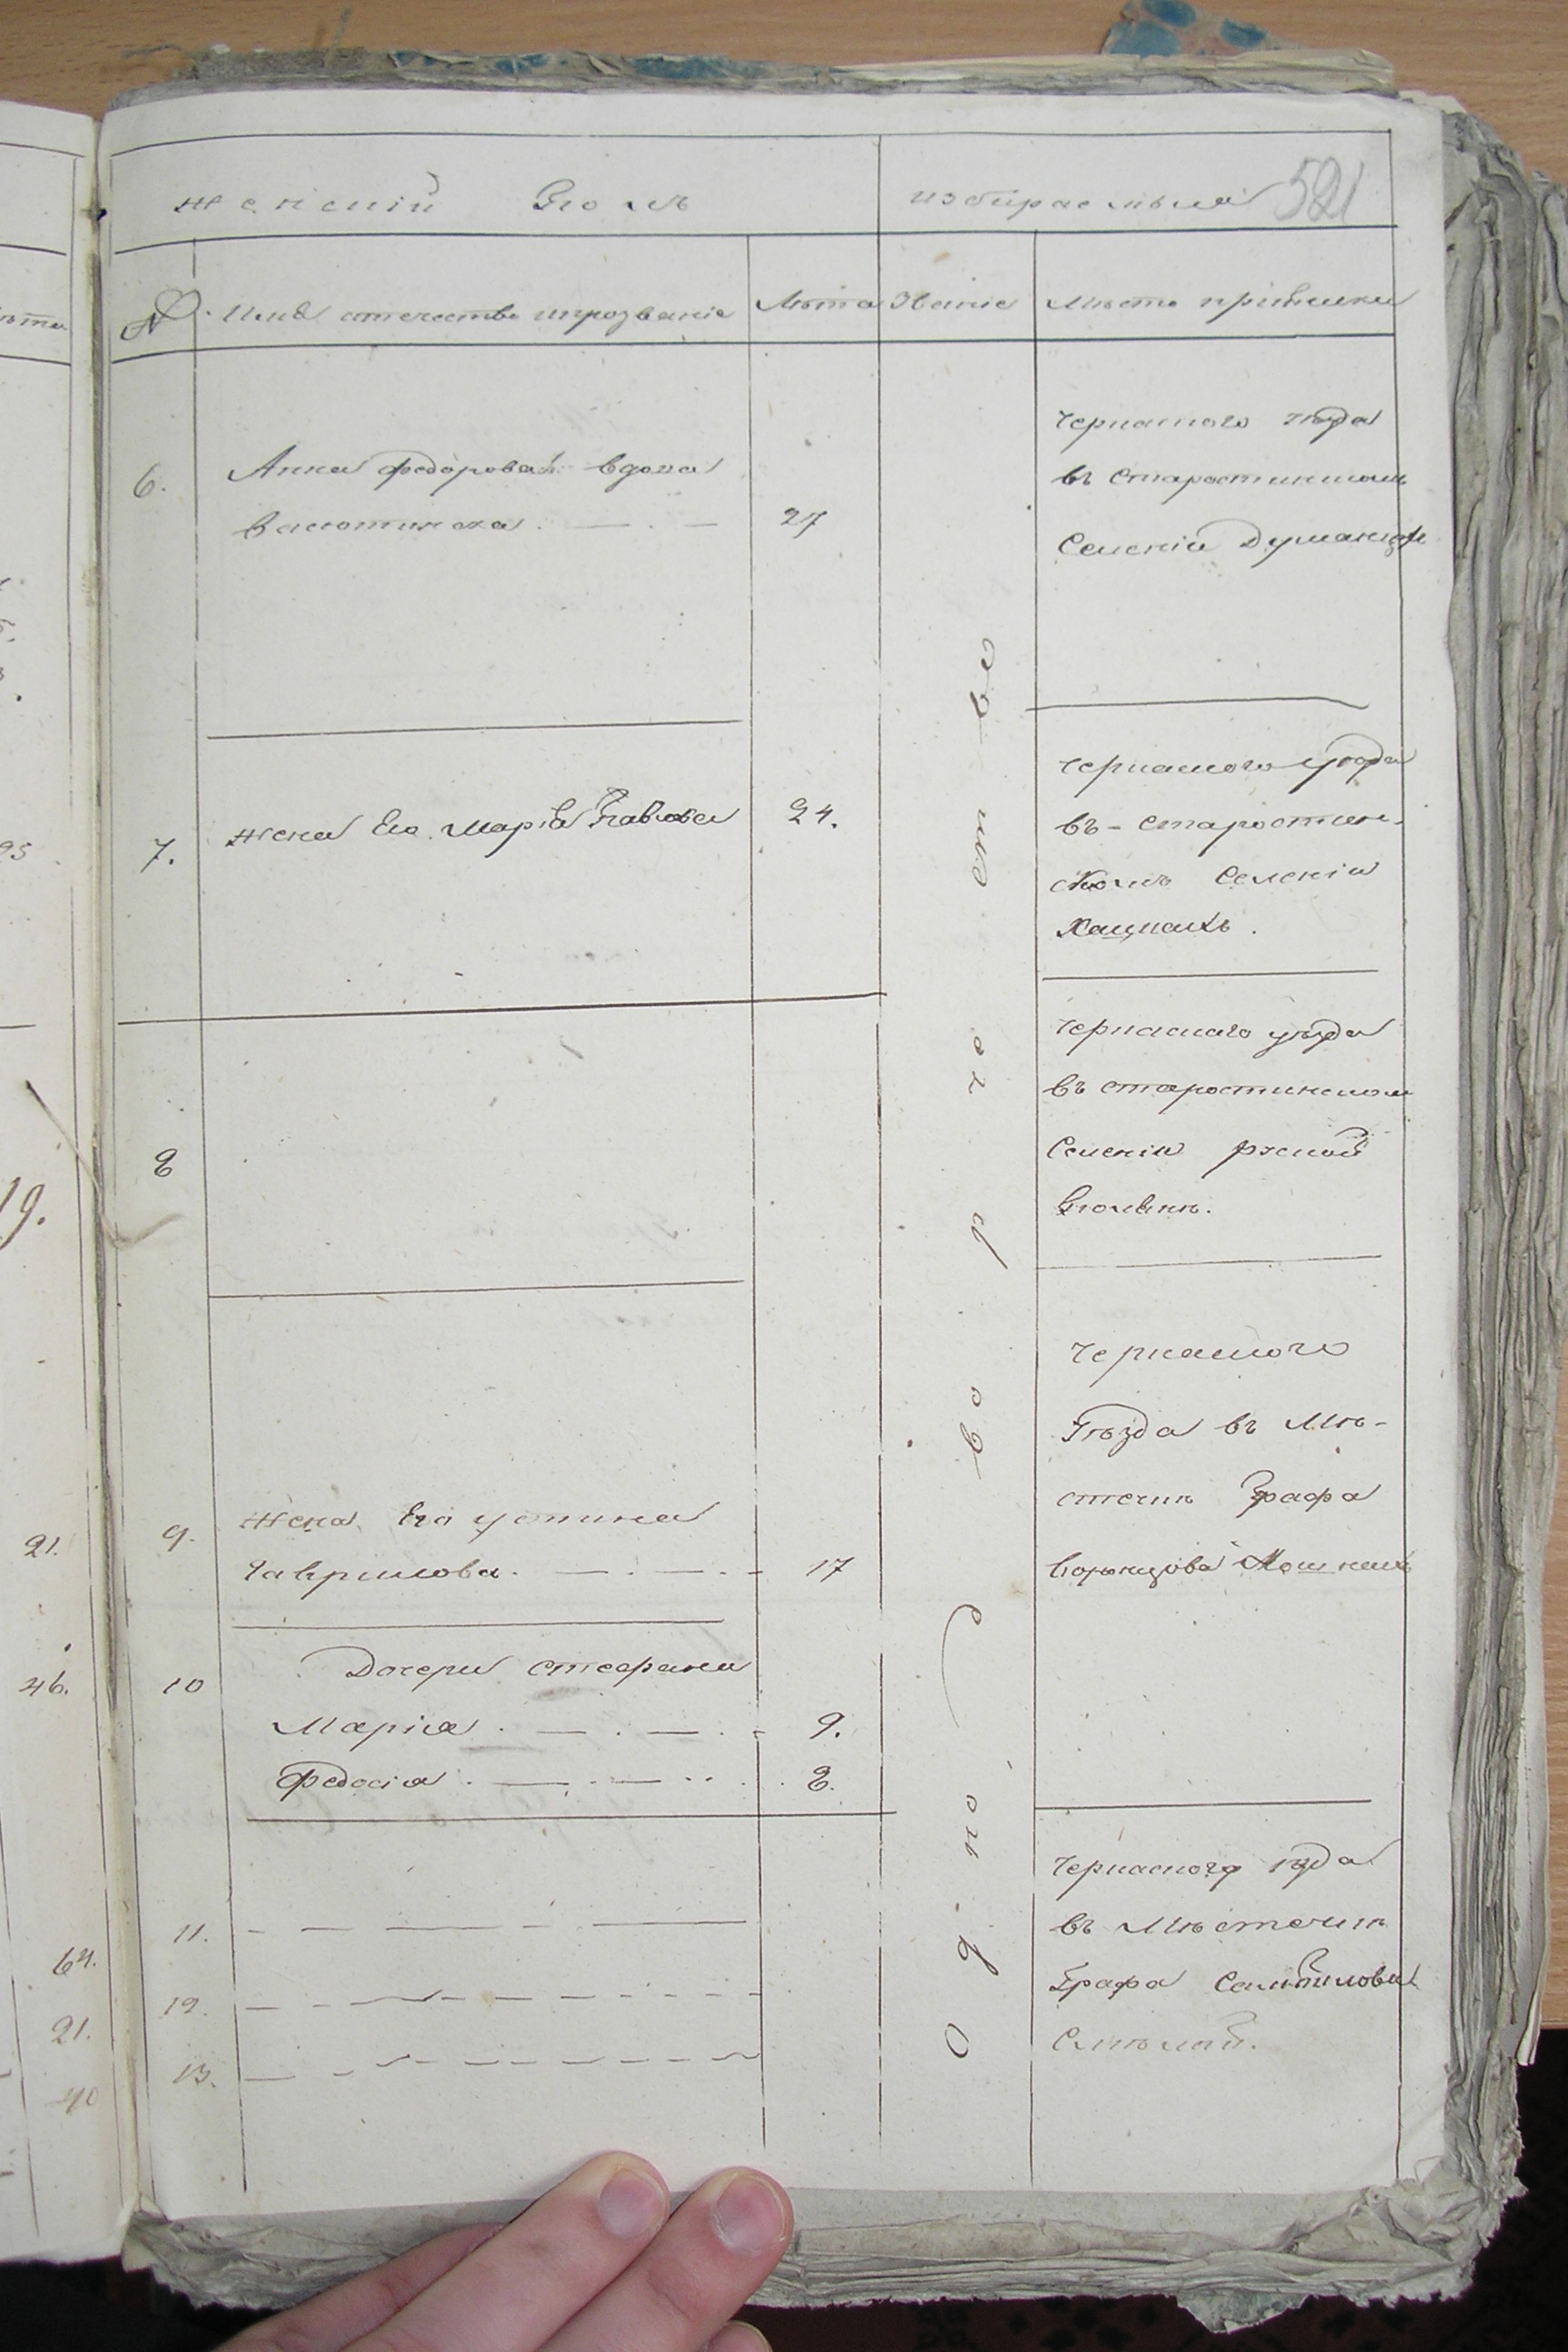 женскій Полъ
избираемыя 521
№. Имя отечество ипрозваніе
Лѣта
Званіе
Мѣсто приписки
6.
Анна федорова вдова
27
Черкаского уѣзда
въ старостинском
Селеніи Думанцах
7.
жена Его Марія Павлова
24.
Черкаского уѣзда
въ - старостин-
ском Селеніи
Хацкахъ.
8
Черкаскаго уѣзда
въ старостинском
Селеніи руской
Поляне.
9.
жена Его устина
Гаврилова.
17
Черкаского
Уѣзда въ Мѣ-
стечкѣ Графа
Воронцова Мошнахъ
10
Дочери стефана
Марія.
9.
Федосія.
8.
11.
12.
13.
Черкаского уѣзда
въ Мѣстечкѣ
Графа Самойлова
Смѣлой.
О д но д во р че ст во
ѣта
95
19.
21.
46.
64.
21.
40